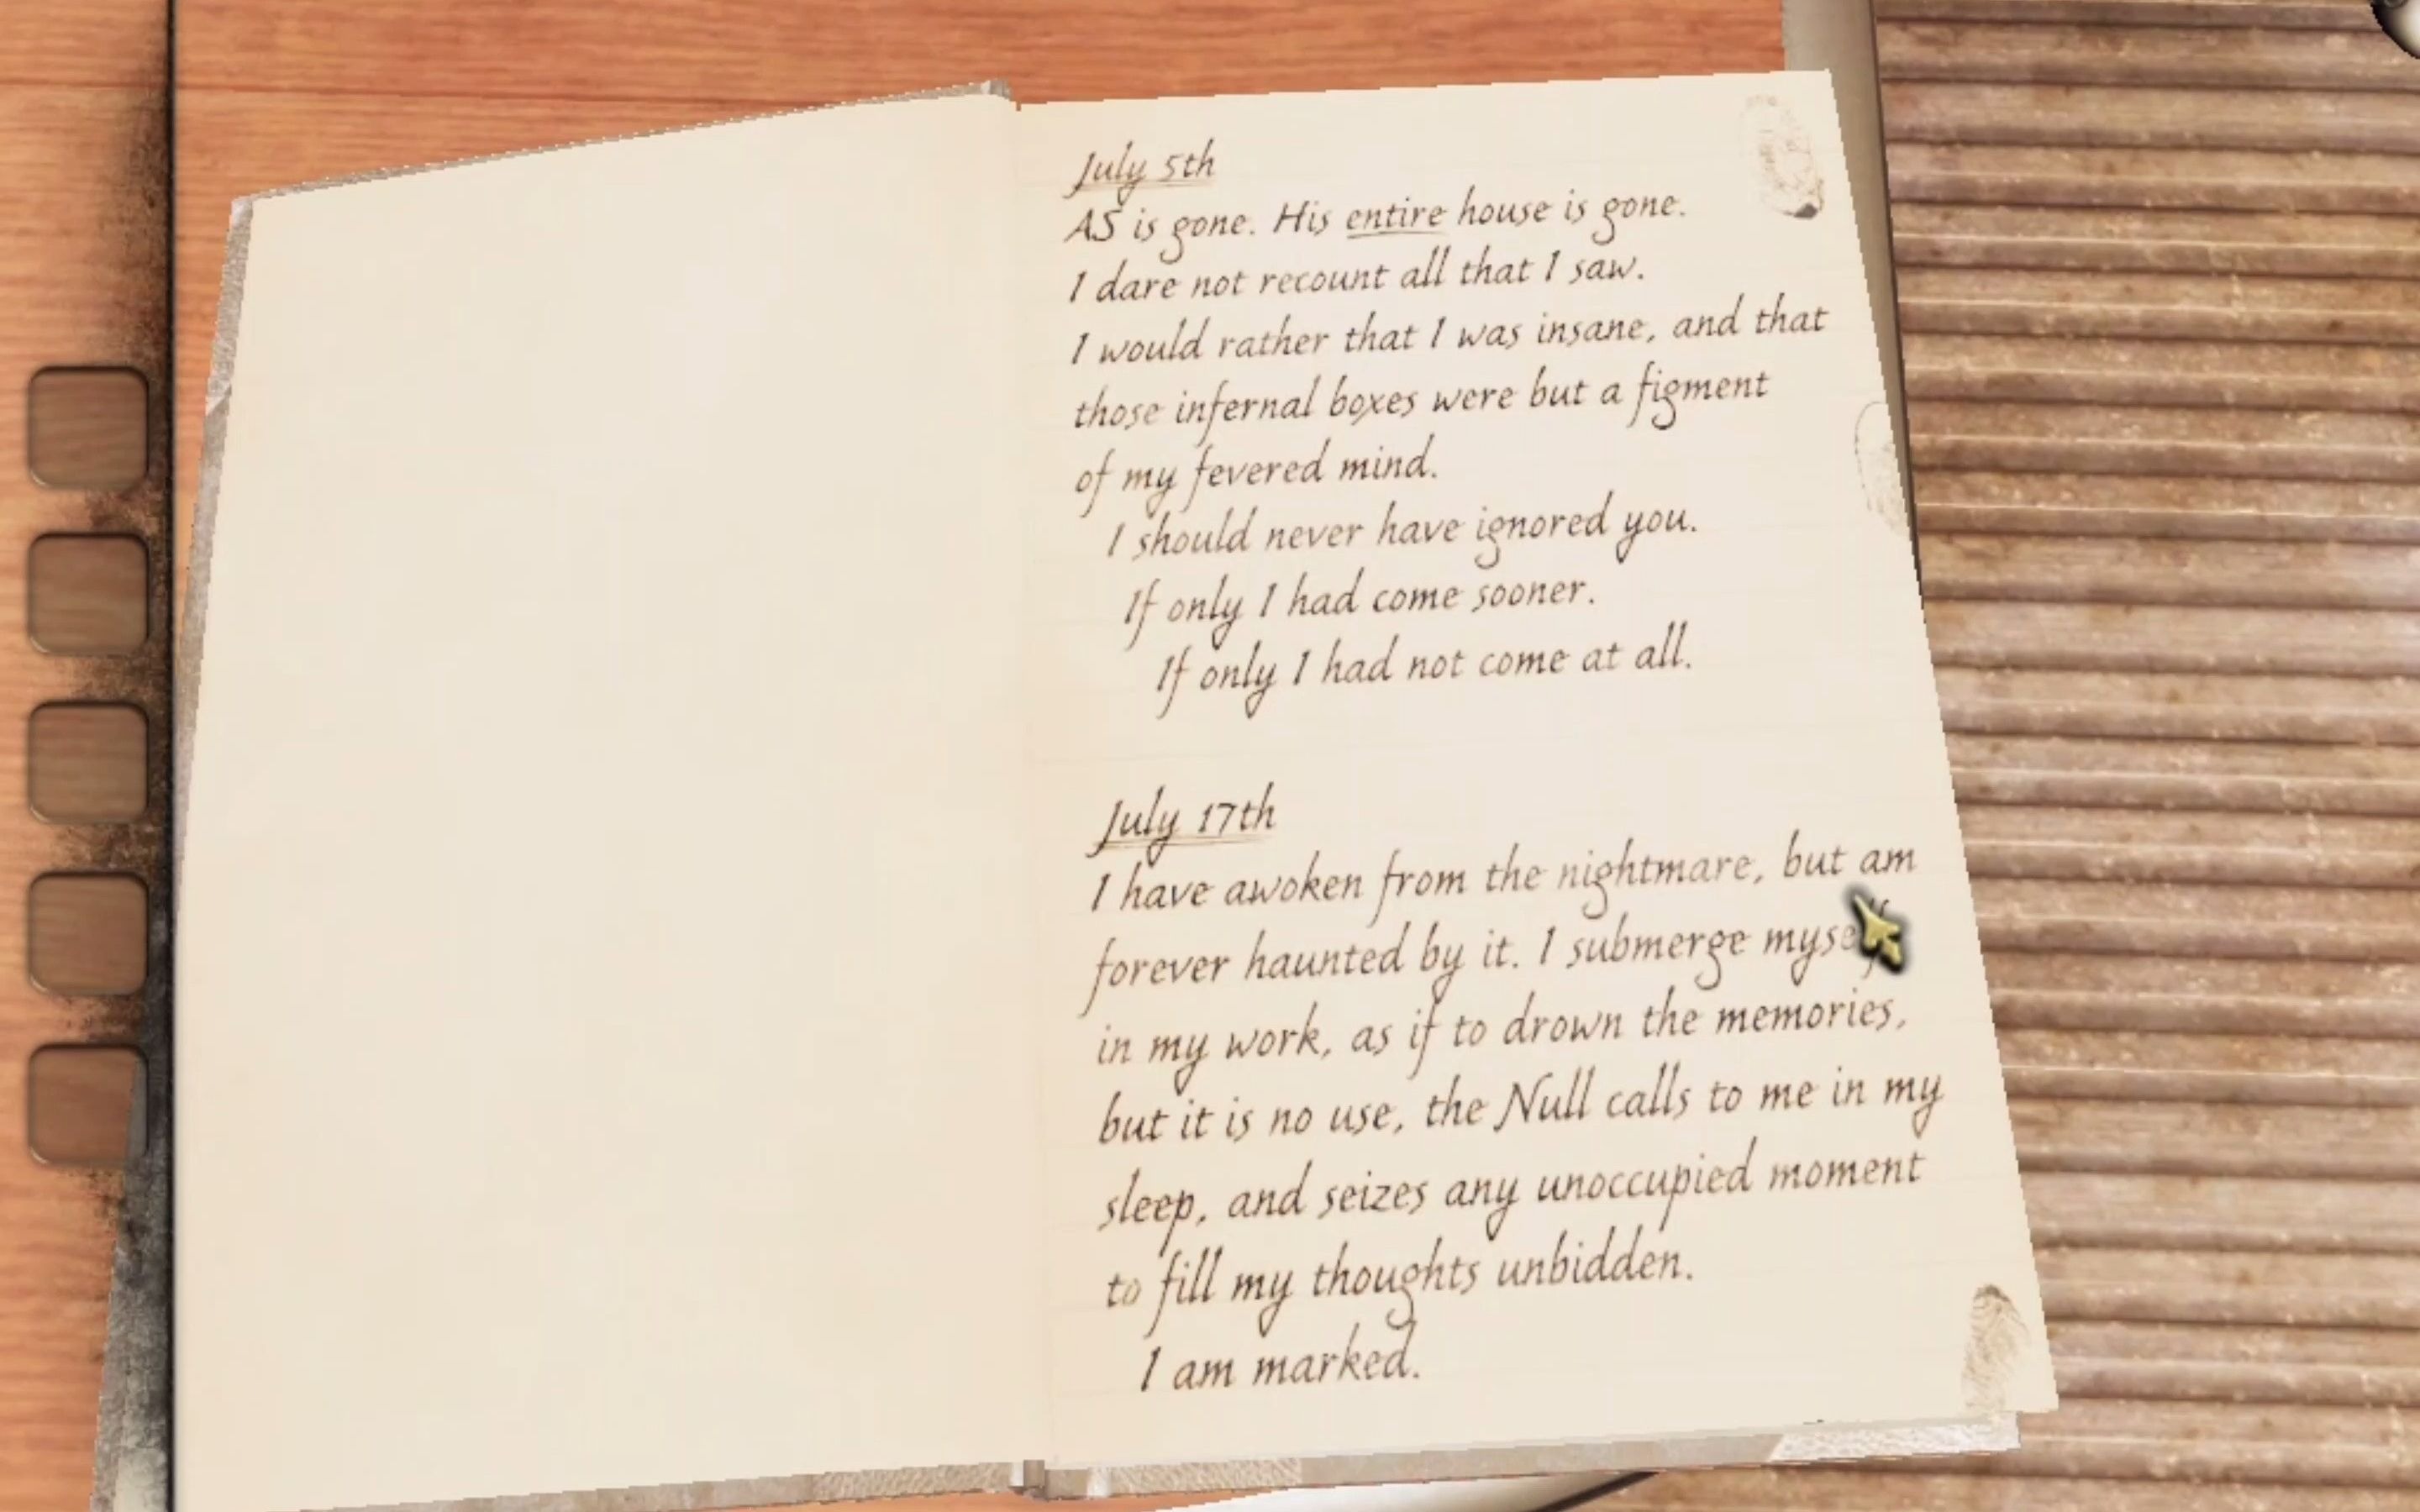 July 5th
AS is gone. His entire house is gone.
I dare not recount all that I saw.
I would rather that I was insane, and that
those infernal boxes were but a figment
of my fevered mind.
I should never have ignored you.
If only I had come sooner.
If only I had not come at all.
July 17th
I have awoken from the nightmare, but am
forever haunted by it. I submerge myself
in my work, as if to drown the memories,
but it is no use, the Null calls to me in my
sleep, and seizes any unoccupied moment
to fill my thoughts unbidden.
I am marked.